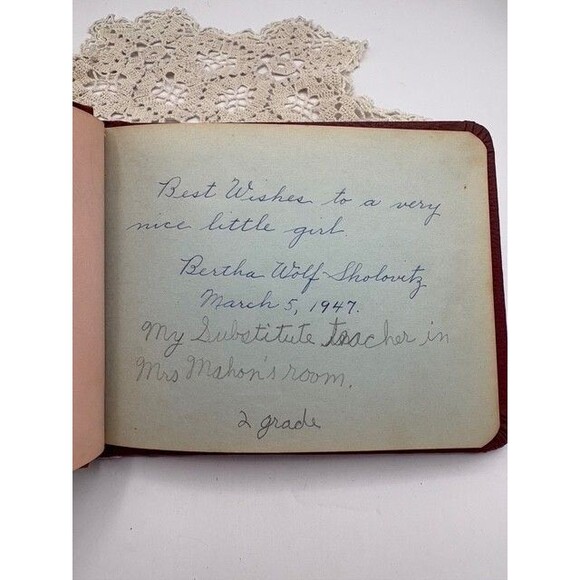 Best Wishes to a very
nice little girl.
Bertha Wolf-Sholovitz
March 5, 1947.
My Substitute teacher in
Mrs Mahon's room.
2 grade